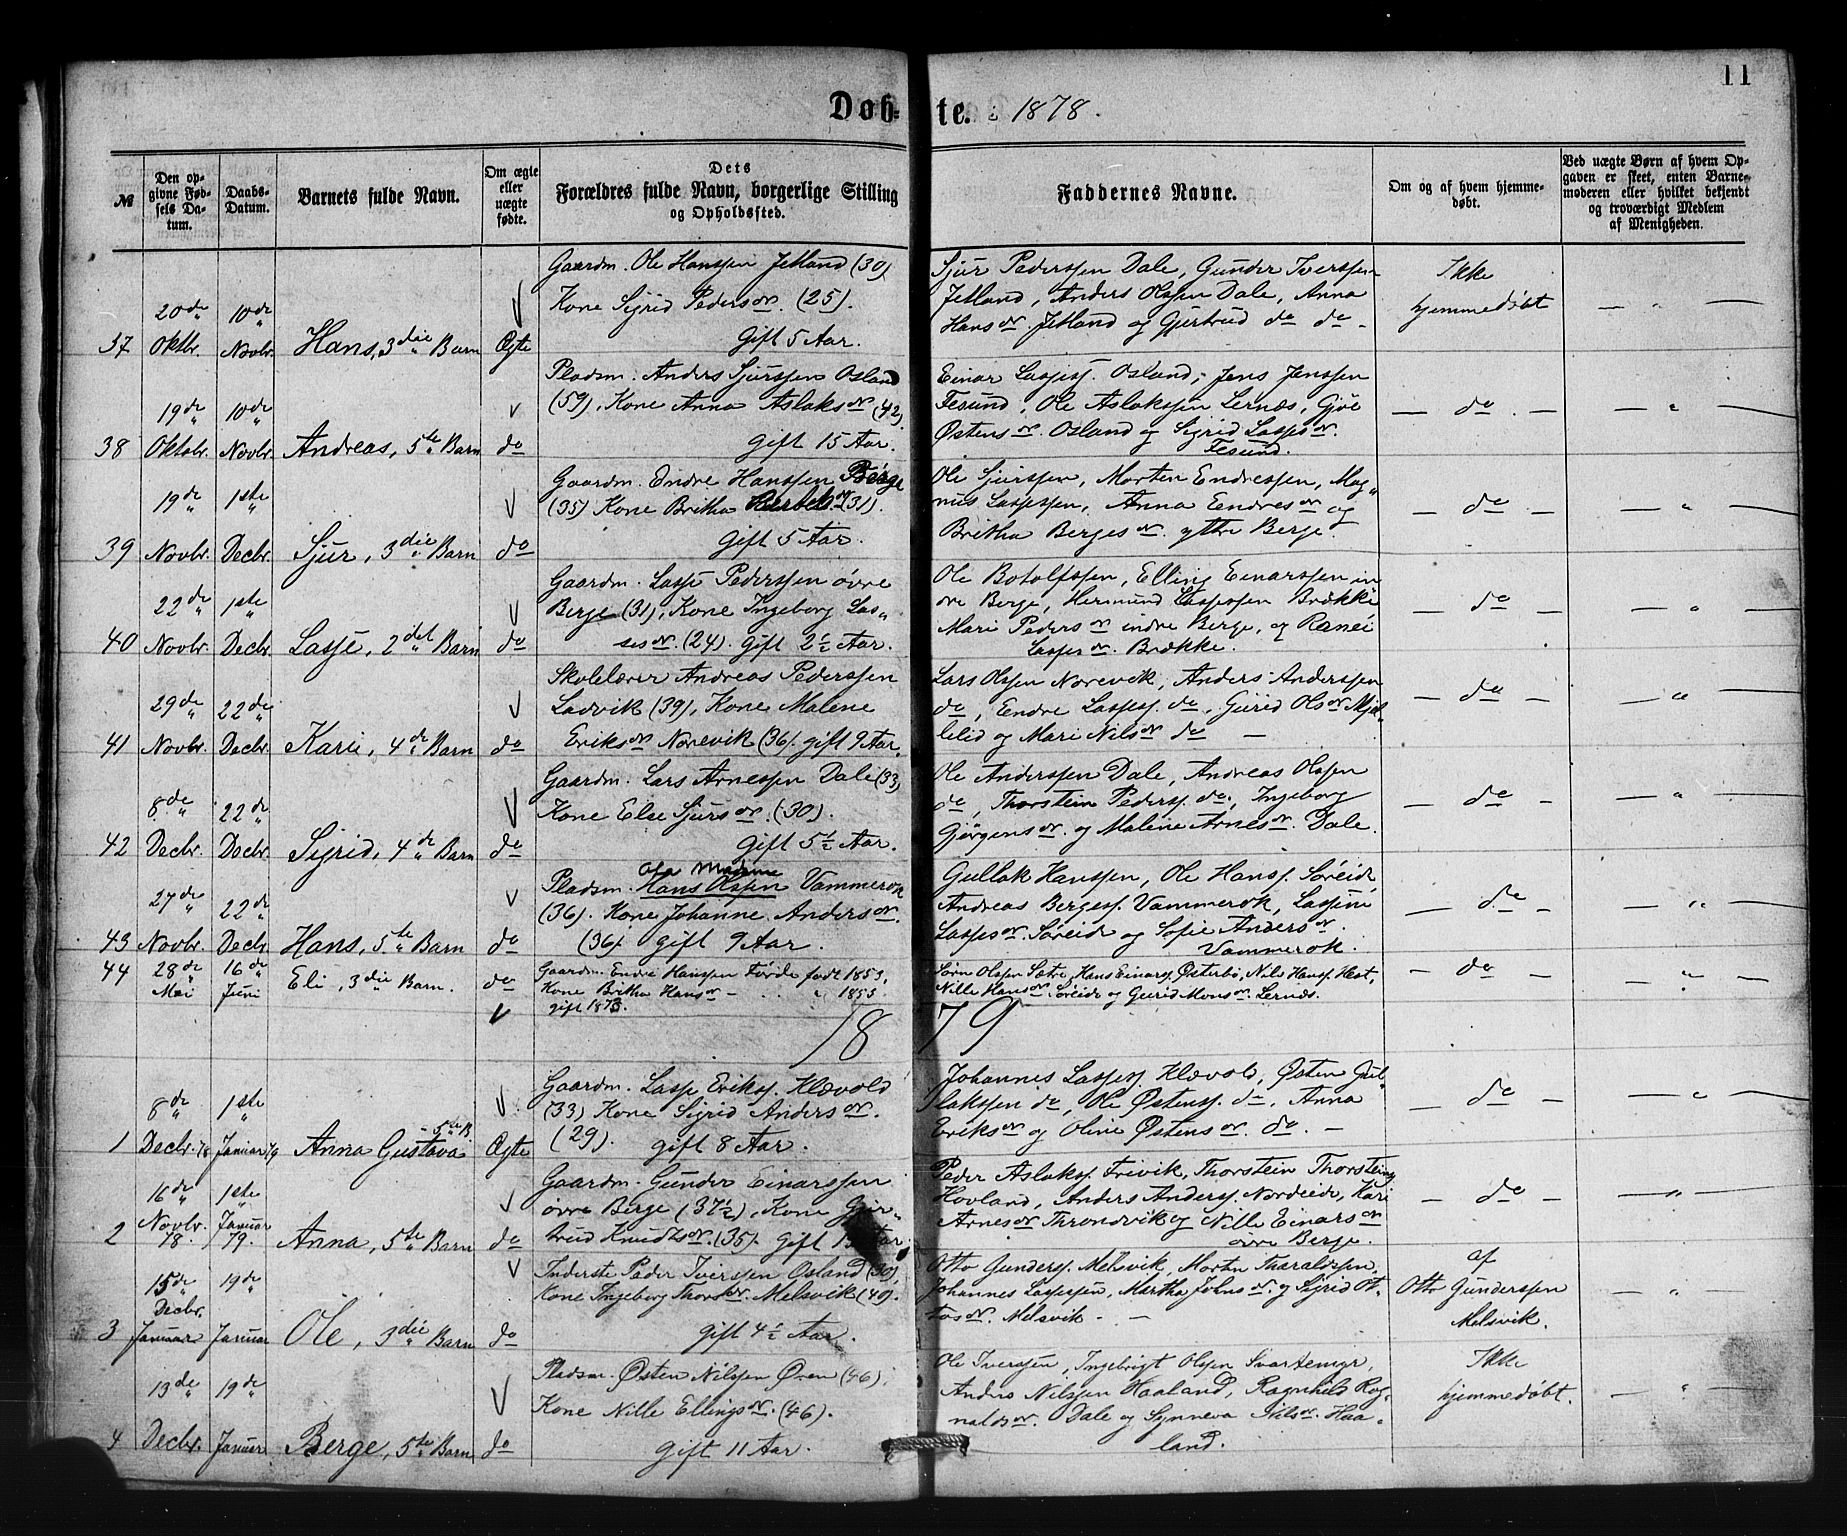 11
Døb- te. 1878.
№
Den opgivne Fødsels Datum.
Daabs-Datum.
Barnets fulde Navn.
Om ægte eller uægte fødte.
Dets Forældres fulde Navn, borgerlige Stilling og Opholdsted.
Faddernes Navne.
Om og af hvem hjemmedøbt.
Ved uægte Børn af hvem Opgaven er skeet, enten Barnemoderen eller hvilket bekjendt og troværdigt Medlem af Menigheden.
37 20de Oktbr. 10de Novbr. Hans, 3die Barn Ægte
Gaardm. Ole Hanssen Jetland (30)
Kone Sigrid Pedersdr. (25).
Gift 5 Aar.
Sjur Pederssen Dale, Gunder Iverssen
Jetland, Anders Olssen Dale, Anna
Hansdr. Jetland og Gjertrud do do -
Ikke
hjemmedøbt
38 19de Oktobr. 10de Novbr. Andreas, 5te Barn do
Pladsm. Anders Sjurssen Osland
(59), Kone Anna Aslaksdr (42).
gift 15 Aar.
Einar Lassess. Osland, Jens Jenssen
Tesund, Ole Aslakssen Lernæs, Gjøe
Østensdr. Osland og Sigrid Lassesdr.
Tesund.
- do -
39 19de Novbr. 1ste Decbr. Sjur, 3die Barn do
Gaardm. Endre Hanssen Berge
(35) Kone Britha (31).
gift 5 Aar.
Ole Sjurssen, Morten Endressen, Mag-
nus Lassessen, Anna Eendresdr og
Britha Bergesdr. yttre Berge.
- do -
40 22de Novbr. 1ste Decbr. Lasse, 2det Barn do
Gaardm. Lasse Pederssen øvre
Berge (31), Kone Ingeborg Las-
sesdr. (24). gift 2½ Aar.
Ole Botolfssen, Elling Einarssen in
dre Berge, Hermund Lassessen Brække
Mari Pedersdr indre Berge, og Ranei
Lassesdr. Brække.
- do -
41 29de Novbr. 22de Decbr. Kari, 4de Barn do
Skolelærer Andreas Pederssen
Ladvik (39), Kone Malene
Eriksdr Norevik (36). gift 9 Aar.
Lars Olssen Norevik, Anders Anderssen
do, Eendre Lassess. do, Gurid Olsdr Mjøl-
lelid og Mari Nilsdr do -
- do -
42 8de Decbr. 22de Decbr. Sigrid, 4de Barn do
Gaardm. Lars Arnessen Dale (33)
Kone Else Sjursdr. (30).
gift 5½ Aar.
Ole Anderssen Dale, Andreas Olssen
do, Thorstein Peders. do, Ingeborg
Gjørgensdr. og Malene Arnesdr. Dale.
- do -
43 27de Novbr. 22de Decbr Hans, 5te Barn do
Ole Madsene
Pladsm. Hans Olssen Vammerok
(36). Kone Johanne Andersdr.
(36). gift 9 Aar.
Gullak Hanssen, Ole Hanss. Søreide
Andreas Bergess. Vammerok, Lassine
Lassesdr. Søreide og Sofie Andersdr.
Vammerok.
- do -
44 28de Mai 16de Juni Eli, 3die Barn. do
Gaardm. Endre Hanssen Førde født 1853.
Kone Britha Hansdr - " 1855.
gift 1873.
Sørn Olssen Sætre, Hans Einarss. Østerbø, Nils Hanss. Hest,
Nille Hansdr. Søreide og Gurid Monsdr. Lernæs.
- do -
1879
1 8de Decbr. 78 1ste Januar 79 Anna Gustava - 5te B. Ægte
Gaardm. Lasse Erikss. Klævold
(33) Kone Sigrid Andersdr.
(29). gift 8 Aar.
Johannes Lassess. Klævold, Østen Gul-
lakssen do, Ole Østenss. do, Anna
Eriksdr og Oline Østensdr. do. -
- do -
2 16de Novbr. 78. 1ste Januar 79. Anna, 5te Barn do
Gaardm. Gunder Einarssen
øvre Berge (37½), Kone Gjer-
trud Knudtsdr. (35). gift Aar.
Peder Aslakss. Trivik, Thorstein Thorsteins
Hovland, Anders Anderss. Nordeide, Kari
Arnesdr Throndvik og Nille Einarsdr
øvre Berge.
- do -
3 15de Decbr. Januar 19de Januar Ole, 3die Barn do
Inderste Peder Iverssen Osland (30),
Kone Ingeborg Thorsdr. Melsvik (40).
gift 4½ Aar.
Otto Gunderss. Melsvik, Morten Tharaldssen,
Johannes Lassessen, Martha Johnsdr. og Sigrid Ot-
tosdr. Melsvik - -
af
Otto Gunderssen
Melsvik.
4 13de Decbr. 19de Januar Berge, 5te Barn do
Pladsm. Østen Nilssen Øren (46),
Kone Nille Ellingsdr. (46).
gift 11 Aar.
Ole Iverssen, Ingebrigt Olssen Svartemyr,
Anders Nilssen Haaland, Ragnhild Rag-
naldsdr. Dale og Synneva Nilsdr. Haa-
land.
Ikke
hjemmedøbt.